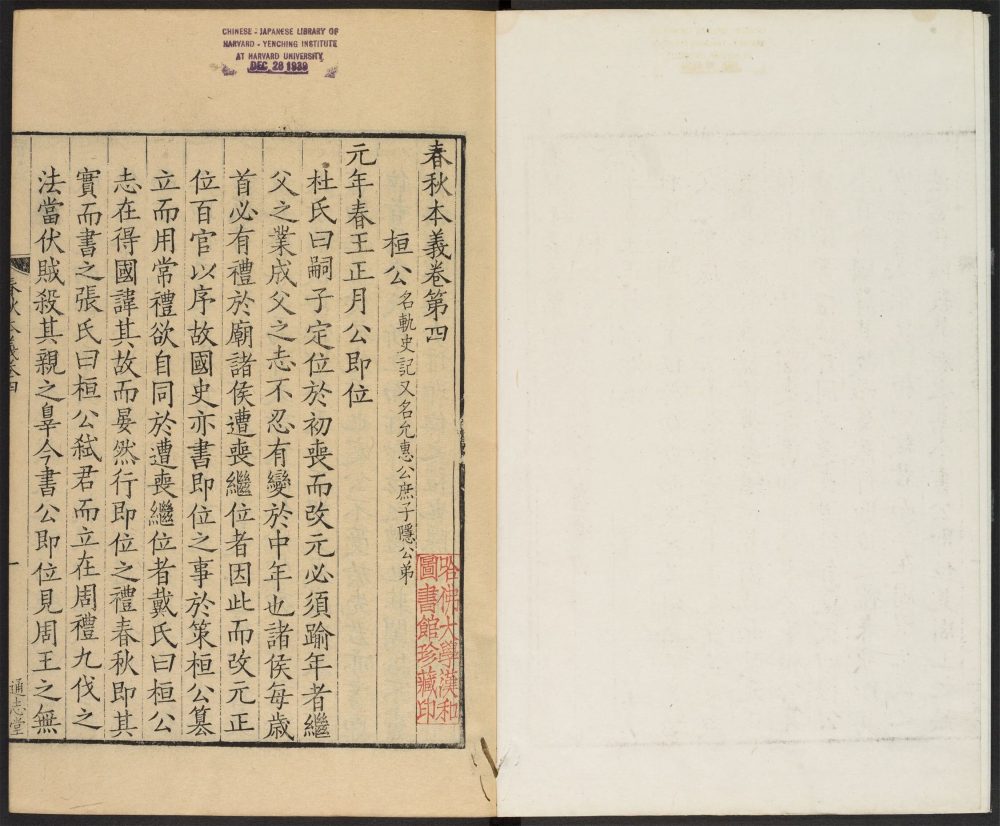 CHINESE - JAPANESE LIBRARY OF
HARVARD - YENCHING INSTITUTE
AT HARVARD UNIVERSITY
DEC 28 1939
春秋本義卷第四
桓公名軌史記又名允惠公庶子隱公弟
元年春王正月公即位
杜氏曰嗣子定位於初喪而改元必須踰年者繼
父之業成父之志不忍有變於中年也諸侯每歲
首必有禮於廟諸侯遭喪繼位者因此而改元正
位百官以序故國史亦書即位之事於策桓公篡
立而用常禮欲自同於遭喪繼位者戴氏曰桓公
志在得國諱其故而晏然行即位之禮春秋即其
實而書之張氏曰桓公弒君而立在周禮九伐之
法當伏賊殺其親之辠今書公即位見周王之無
春秋本義卷四
一
通志堂
哈佛大學漢和
圖書館珍藏印